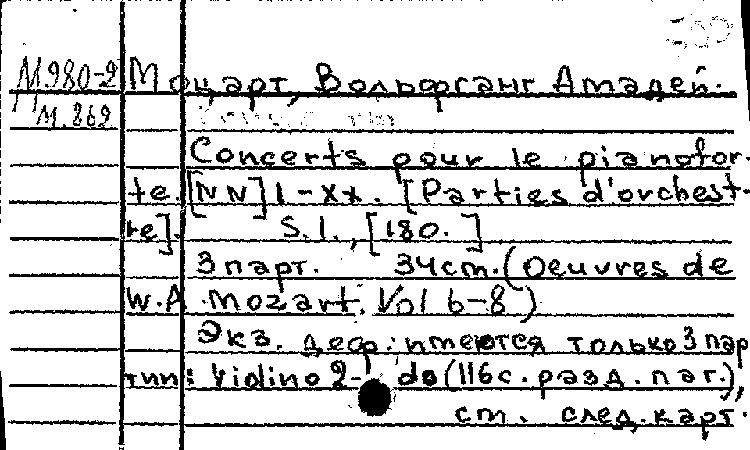 М980-2 Моцарт, Вольфганг Амадей.
М.869
Concerts pour le pianofor-
te. [NN] I-XX. [Parties d'orchest-
re]. S.l., [180. ]
3 парт. 34cm. (Oeuvres de
W.A. Mozart. Vol 6-8)
Экз. деф.: имеются только 3 пар
тии: Violino 2-do (116 с. разд. паг.),
см. след. карт.